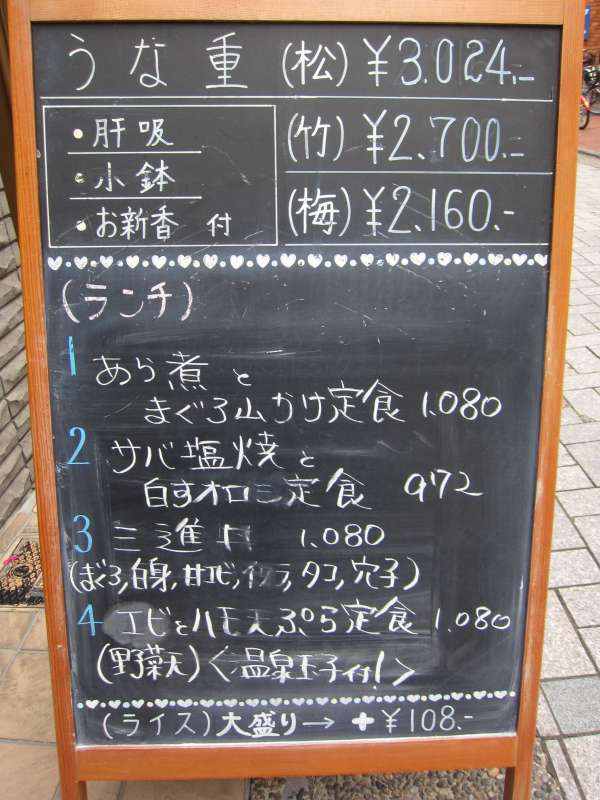 うな重 (松) ¥3,024.-
・肝吸
・小鉢
・お新香 付
(竹) ¥2,700.-
(梅) ¥2,160.-
(ランチ)
1 あら煮と
まぐろ山かけ定食 1,080
2 サバ塩焼と
白すオロシ定食 972
3 三進丼 1,080
(まぐろ,白身,甘エビ,イクラ,タコ,穴子)
4 エビとハモ天ぷら定食 1,080
(野菜天) <温泉玉子付!>
(ライス) 大盛り→ +¥108.-